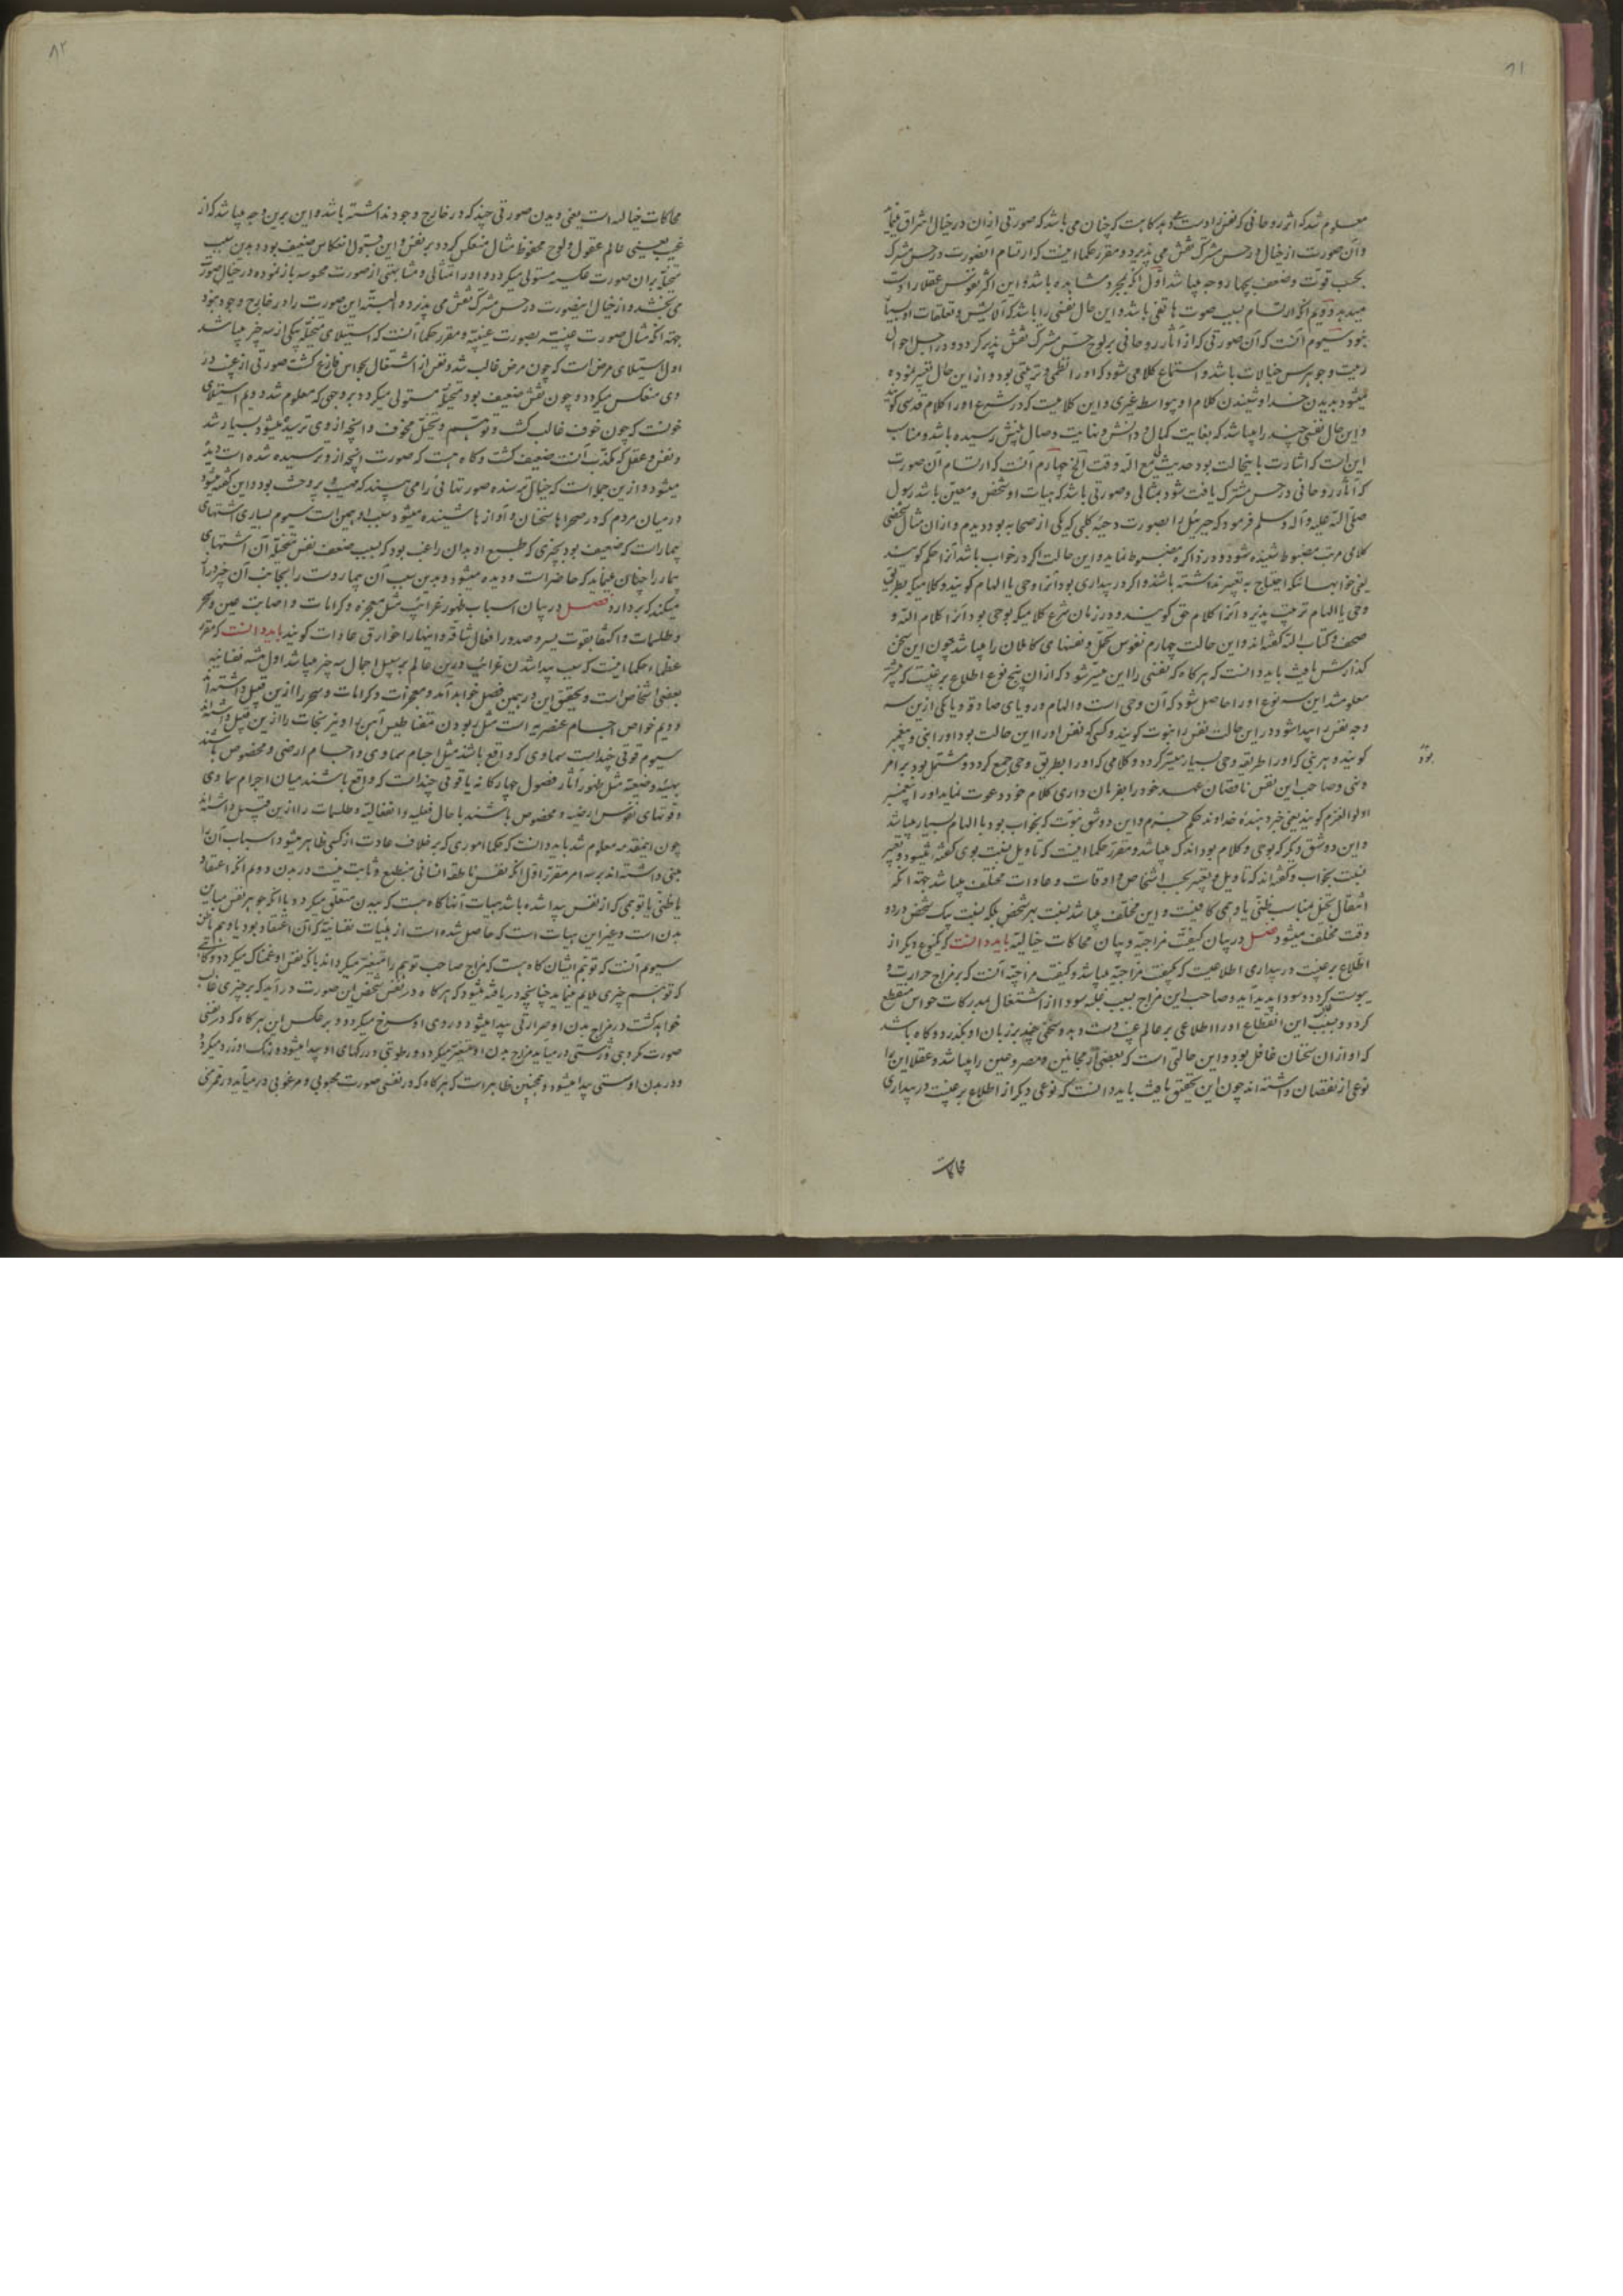 ۸۱
معلوم شد که اثر روحانی که نفس را دست دهد گاه هست که چنان می باشد که صورتی ازان در خیال اشراق نماید
و آن صورت از خیال در حس مشترک نقش می پذیرد و مقرر حکما اینست که ارتسام آنصورت در حس مشترک
بحسب قوت و ضعف بچهار وجه میباشد اول آنکه بمجرد مشاهده باشد و این اکثر نفوس عقلا را دست
میدهد دویم آنکه ارتسام بسبب صوت هاتفی باشد و این حال نفسی را باشد که آلایش و تعلقات او بسیار
نبود سیوم آنست که آن صورتی که از آثار روحانی بر لوح حس مشترک نقش پذیر کردد در اجمل احوال
زینت و جوهرس خیالات باشد و استماع کلامی شود که او را نظمی و ترتیبی بود و از این حال تعبیر نموده
میشود بدیدن خدا و شنیدن کلام او بیواسطه غیری و این کلامیست که در شرع او را کلام قدسی کویند
و این حال نفسی چند را میباشد که بغایت کمال و دانش و نهایت وصال بینش رسیده باشد و مناسب
این است که اشارت باینحالت بود حدیث لی مع الله وقت الخ چهارم آنست که ارتسام آن صورت
که آثار روحانی در حس مشترک یافت شود بمثالی و صورتی باشد که بهیات او شخص و معین باشد رسول
صلی الله علیه و آله و سلم فرمود که جبرئیل را بصورت دحیه کلبی که یکی از صحابه بود دیدم و ازان مثال شخصی
کلامی مرتب مضبوط شنیده شود و در ذاکره مضبوط نماید و این حالت اکر در خواب باشد آنرا حکم کویند
یعنی خوابهائیکه احتیاج به تعبیر نداشته باشند و اکر در بیداری بود آنرا وحی یا الهام کویند و کلامیکه بطریق
وحی یا الهام ترتیب پذیرد آنرا کلام حق کویند و در زمان شرع کلامیکه بوحی بود آنرا کلام الله و
صحف و کتاب الله کفته اند و این حالت چهارم نفوس مکمل و نفسهای کاملان را میباشد چون این سخن
کذارش یافت باید دانست که هر کاه که نفسی را این میسر شود که ازان پنج نوع اطلاع بر غیب که پیشتر
معلوم شد این سه نوع او را حاصل شود که آن وحی است و الهام و رویای صادقه و یا یکی ازین سه
وجه نفس را پیدا شود در این حالت نفس را نبوت کویند و کسی که نفس او را این حالت بود او را نبی و پیغمبر
کویند و هر نبی که او را طریقه وحی بسیار میسر کردد و کلامی که او را بطریق وحی جمع کردد و مشتمل بود بر امر
بود
و نهی و صاحب این نفس ناقصان عهد خود را بفرمان داری کلام خود دعوت نماید او را پیغمبر
اولوالعزم کویند یعنی خبر دهنده خداوند حکم جزم و این دو شق نبوت که بخواب بود یا الهام بسیار میباشد
و این دو شق دیکر که بوحی و کلام بود اندک میباشد و مقرر حکما اینست که تاویل نسبت بوحی کفته میشود و تعبیر
نسبت بخواب و کفته اند که تاویل و تعبیر بحسب اشخاص و اوقات و عادات مختلف میباشد جهة آنکه
اشغال تخیل مناسب ظنی یا وهمی کافیست و این مختلف میباشد نسبت بهر شخص بلکه نسبت بیک شخص در دو
وقت مختلف میشود فصل در بیان کیفیت مزاجیه و بیان محاکات خیالیه باید دانست که یکنوع دیکر از
اطلاع بر غیب در بیداری اطلاعیست که بکیفیت مزاجیه میباشد و کیفیت مزاجیه آنست که بر مزاج حرارت و
یبوست کردد و سودا پدید آید و صاحب این مزاج بسبب غلبه سودا از اشتغال بمدرکات حواس منقطع
کردد و بسبب این انقطاع او را اطلاعی بر عالم غیب دست دهد و سخنی چند بر زبان او بکذرد و کاه باشد
که او ازان سخنان غافل بود و این حالتی است که بعضی از مجانین و مصروعین را میباشد و عقلا این را
نوعی از نقصان داشته اند چون این تحقیق یافت باید دانست که نوعی دیکر از اطلاع بر غیب در بیداری
محاکات
۸۲
محاکات خیالیه است یعنی دیدن صورتی چند که در خارج وجود نداشته باشد و این برین وجه میباشد که از
غیب یعنی عالم عقول و لوح محفوظ مثال منعکس کردد بر نفس و این قبول انعکاس ضعیف بود و بدین سبب
متخیله بران صورت عکسیه مستولی میکردد و او را مثالی و مشابهتی از صورت محسوسه باز نموده در خیال صورت
می بخشد و از خیال اینصورت در حس مشترک نقش می پذیرد و البته این صورت را در خارج وجود نبود
جهة آنکه مثال صورت غیبیه بصورت عینیه و مقرر حکما آنست که استیلای متخیله بیکی از سه چیز میباشد
اول استیلای مرض است که چون مرض غالب شد و نفس از اشتغال بحواس فارغ کشت صورتی از غیب در
وی منعکس میکردد و چون نقش ضعیف بود متخیله مستولی میکردد بر وجهی که معلوم شد دویم استیلای
خوفست که چون خوف غالب کشت و توهم و تخیل مخوف و آنچه از وی ترسیده میشود بسیار شد
و نفس و عقل که مکذب آنست ضعیف کشت و کاه هست که صورت آنچه از و ترسیده شده است دیده
میشود و ازین جمله است که خیال ترسنده صورتهائی را می بیند که مهیب و پر وحشت بود و این کفته میشود
در میان مردم که در صحراها سخنان و آوازها شنیده میشود سبب او همین است سیوم بسیاری اشتهای
بیمارانست که ضعیف بود بچیزی که طبیع او بدان راغب بود که بسبب ضعف نفس متخیله آن اشتهای
بیمار را چنان مینماید که حاضر است و دیده میشود و بدین سبب آن بیمار دست را بجانب آن چیز دراز
میکند که بردارد فصل در بیان اسباب ظهور غرائب مثل معجزه و کرامات و اصابت عین و سحر
و طلسمات و اکتفا بقوت یسیر و صدور افعال شاقه و اینها را خوارق عادات کویند باید دانست که مقرر
عظماء حکما اینست که سبب پیدا شدن غرایب درین عالم بر سبیل اجمال سه چیز میباشد اول هیئت نفسانیه
بعضی اشخاص است و تحقیق این در همین فصل خواهد آمد و معجزات و کرامات و سحر را ازین قبیل داشته اند
دویم خواص اجسام عنصریه است مثل ربودن مقناطیس آهن را و نیرنجات را ازین قبیل داشته اند
سیوم قوتی چند است سماوی که واقع باشند میان اجرام سماوی و اجسام ارضی و مخصوص باشند
بهیئه وضعیه مثل ظهور آثار فصول چهارکانه یا قوتی چند است که واقع باشند میان اجرام سماوی
و قوتهای نفوس ارضیه و مخصوص باشند باحوال فعلیه و انفعالیه و طلسمات را ازین قبیل داشته اند
چون اینمقدمه معلوم شد باید دانست که حکما اموری که بر خلاف عادت از کسی ظاهر میشود اسباب آن را
مبنی داشته اند بر سه امر مقرر اول آنکه نفس ناطقه انسانی منطبع و ثابت نیست در بدن دویم آنکه اعتقاد
یا ظنی یا توهمی که از نفس پیدا شده باشد هیئات آنها کاه هست که ببدن متعلق میکردد با آنکه جوهر نفس مباین
بدن است و غیر این هیات است که حاصل شده است از هیئات نفسانیه که آن اعتقاد بود یا وهم یا ظن
سیوم آنست که توهم ایشان کاه هست که مزاج صاحب توهم را متغیر میکرداند یا آنکه نفس او غمناک میکردد و کاهی
که توهم چیزی ملایم مینماید چنانچه دریافته میشود که هر کاه در نفس شخصی این صورت در آید که بر چیزی غالب
خواهد کشت در مزاج بدن او حرارتی پیدا میشود و روی او سرخ میکردد و بر عکس این هر کاه که در نفسی
صورت مکروهی و زشتی در میآید مزاج بدن او متغیر میکردد و رطوبتی در رکهای او پیدا میشود و رنک او زرد میکردد
و در بدن او سستی پیدا میشود و همچنین ظاهر است که هر کاه که در نفسی صورت محبوبی و مرغوبی در میآید در